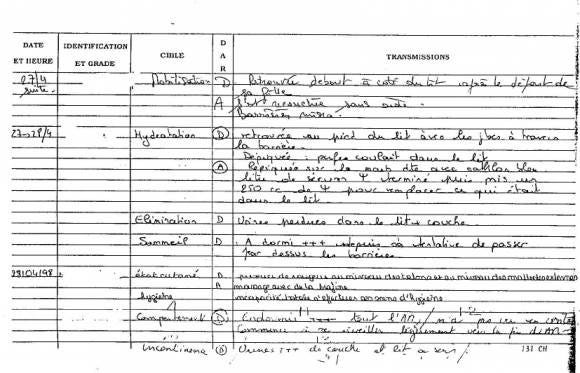 DATE ET HEURE IDENTIFICATION ET GRADE CIBLE D A R TRANSMISSIONS
27/4 suite Mobilisation D Retrouvée debout à coté du lit après le départ de
sa fille
A s'est recouchée sans aide.
Barrières mises.
27→28/4 Hydratation D retrouvée au pied du lit avec les jbes à travers
la barrière.
perf coulait dans le lit
A Repiquée sur la main dte avec cathlon bleu
terminé puis mis un
250 cc de pour remplacer ce qui était
dans le lit.
Elimination D Urines perdues dans le lit + couche.
Sommeil D A dormi +++ depuis sa tentative de passer
par dessus les barrières
28/04/98 état cutané D au niveau des talons et au niveau des
A massage avec de la
hygiène incapacité totale d'effectuer ses soins d'hygiène
Comportement D Endormie tout l'AM, n'a pas
Commence à se réveiller légèrement vers la fin d'AM.
Incontinence D Urines +++ de couche et lit
131 CH